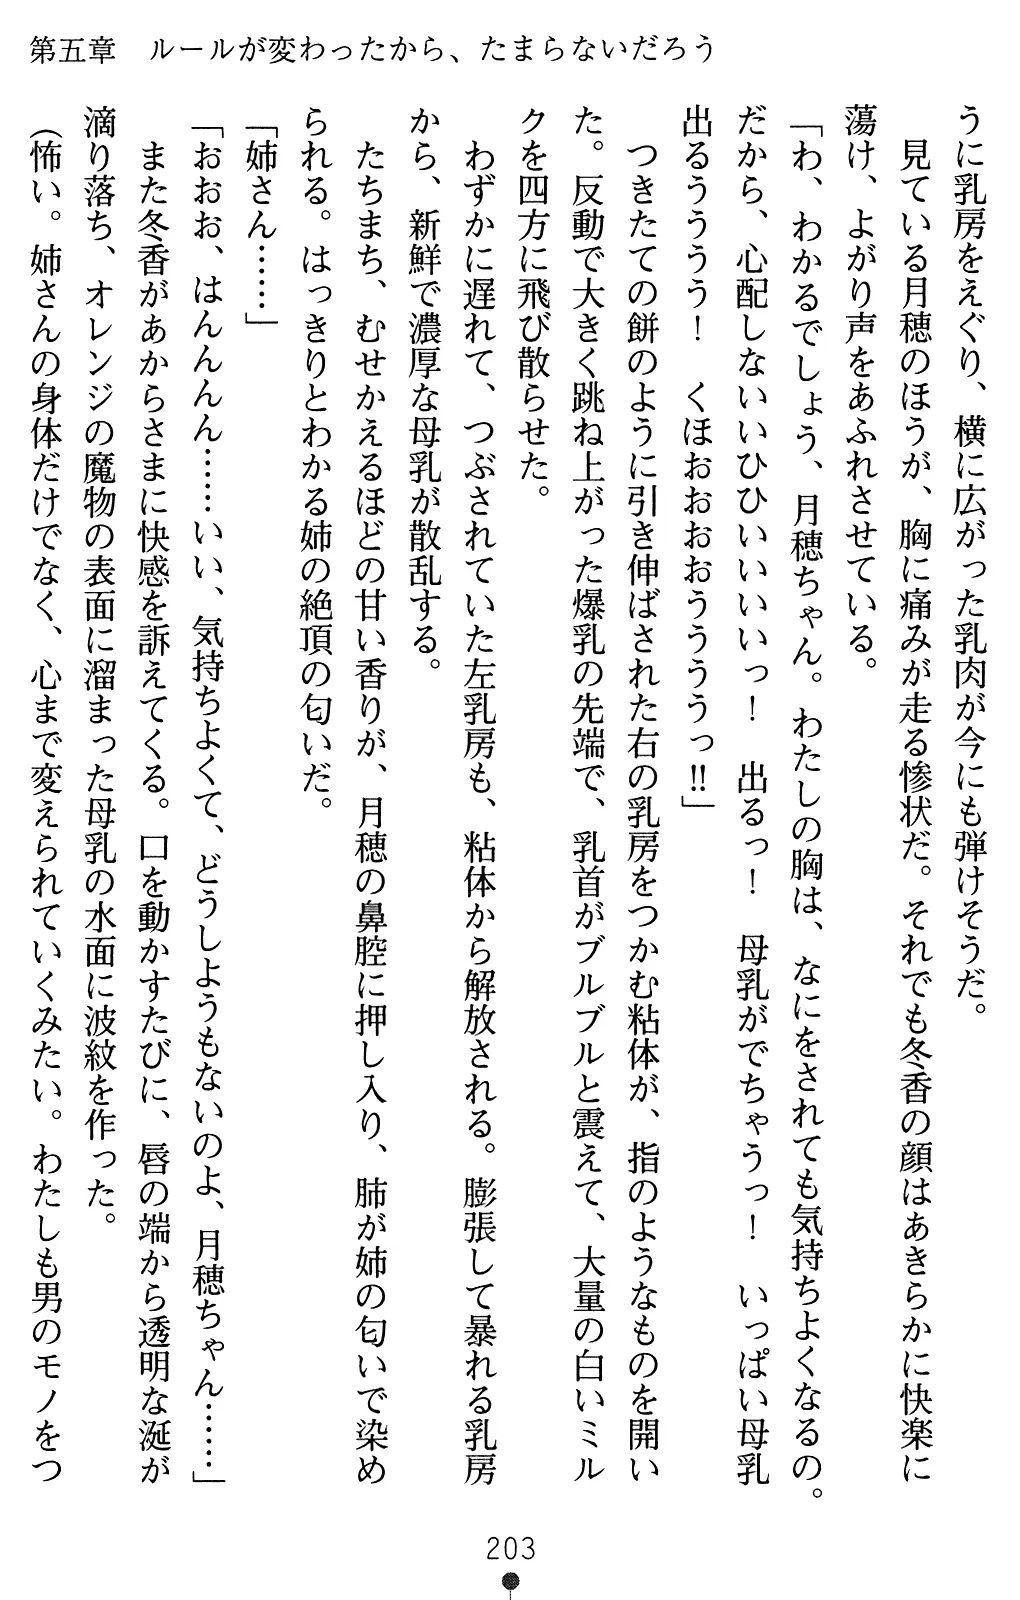 第五章　ルールが変わったから、たまらないだろう
うに乳房をえぐり、横に広がった乳肉が今にも弾けそうだ。
　見ている月穂のほうが、胸に痛みが走る惨状だ。それでも冬香の顔はあきらかに快楽に
蕩け、よがり声をあふれさせている。
「わ、わかるでしょう、月穂ちゃん。わたしの胸は、なにをされても気持ちよくなるの。
だから、心配しないいひひいいいいっ！　出るっ！　母乳がでちゃうっ！　いっぱい母乳
出るうううう！　くほおおおおうううっ‼」
　つきたての餅のように引き伸ばされた右の乳房をつかむ粘体が、指のようなものを開い
た。反動で大きく跳ね上がった爆乳の先端で、乳首がブルブルと震えて、大量の白いミル
クを四方に飛び散らせた。
　わずかに遅れて、つぶされていた左乳房も、粘体から解放される。膨張して暴れる乳房
から、新鮮で濃厚な母乳が散乱する。
　たちまち、むせかえるほどの甘い香りが、月穂の鼻腔に押し入り、肺が姉の匂いで染め
られる。はっきりとわかる姉の絶頂の匂いだ。
「姉さん……」
「おおお、はんんんん……いい、気持ちよくて、どうしようもないのよ、月穂ちゃん……」
　また冬香があからさまに快感を訴えてくる。口を動かすたびに、唇の端から透明な涎が
滴り落ち、オレンジの魔物の表面に溜まった母乳の水面に波紋を作った。
（怖い。姉さんの身体だけでなく、心まで変えられていくみたい。わたしも男のモノをつ
203